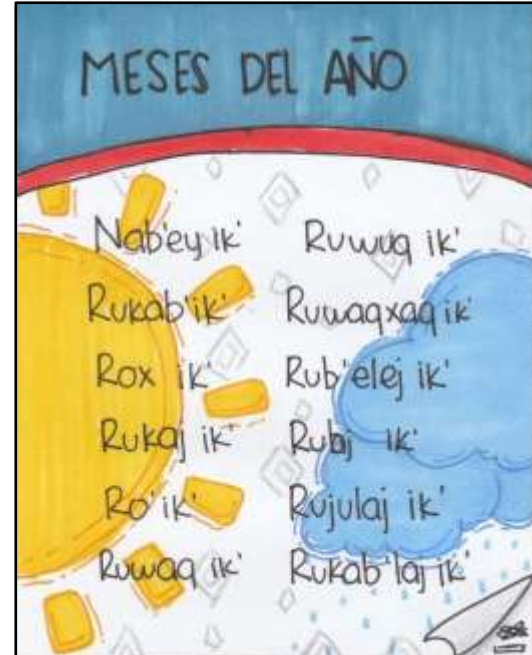 MESES DEL AÑO
Nab'ey ik'
Rukab' ik'
Rox ik'
Rukaj ik'
Ro' ik'
Ruwaq ik'
Ruwuq ik'
Ruwaqxaq ik'
Rub'elej ik'
Rubj ik'
Rujulaj ik'
Rukab'laj ik'